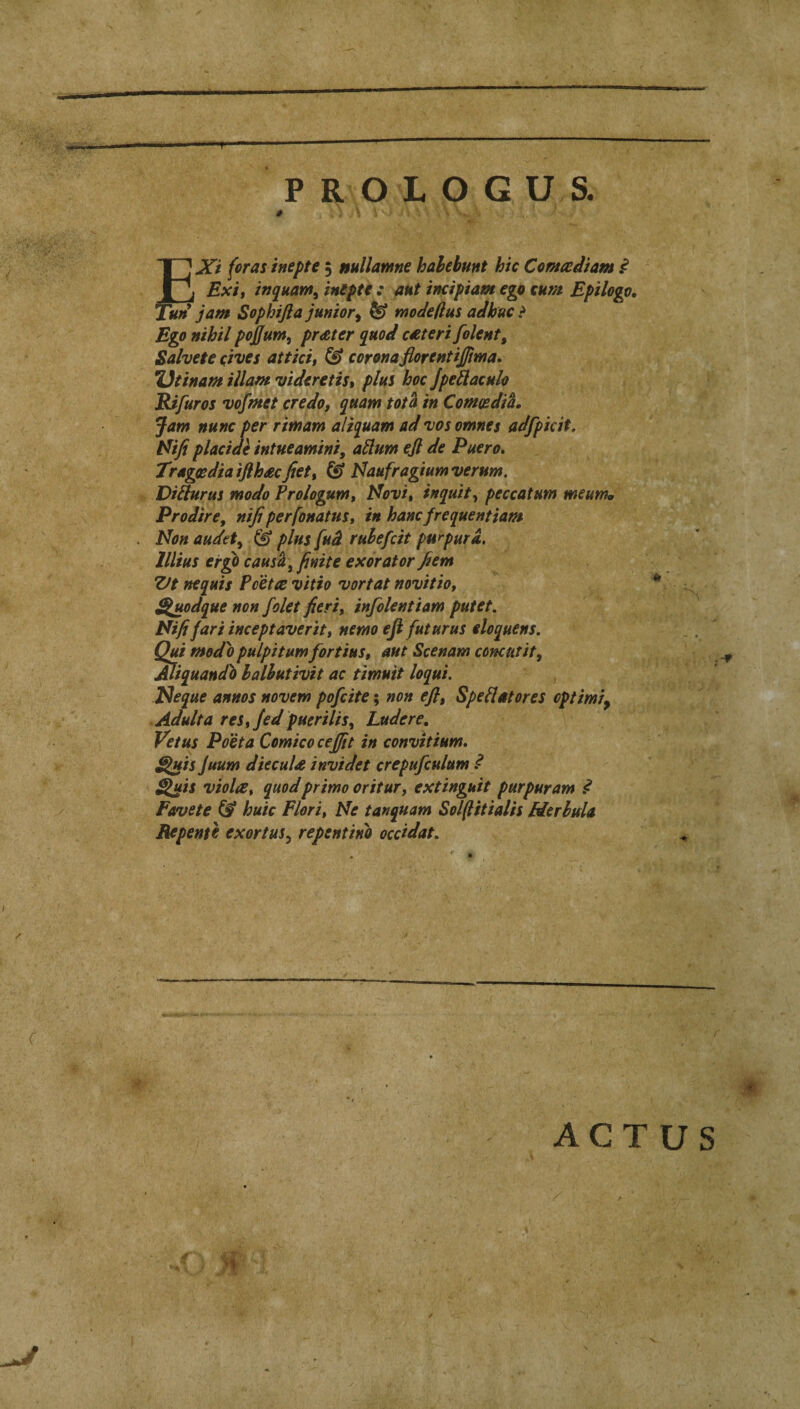 PROLOGUS.
EXi foras inepte ; nullamne habebunt hic Comœdiam ?
Exi, inquam, inepte : aut incipiam ego cum Epilogo.
Tun' jam Sophista junior, & modestus adhuc ?
Ego nihil possum, præter quod cæteri solent,
Salvete cives attici, & corona florentissima.
Utinam illam videretis, plus hoc spectaculo
Risuros vosmet credo, quam totâ in Comœdiâ.
Jam nunc per rimam aliquam ad vos omnes adspicit.
Nisi placidè intueamini, actum est de Puero.
Tragœdia isthæc fiet, & Naufragium verum.
Dicturus modo Prologum, Novi, inquit, peccatum meum.
Prodire, nisi personatus, in hanc frequentiam
Non audet, & plus suâ rubescit purpurâ.
Illius ergò causâ, sinite exorator siem
Ut nequis Poëtæ vitio vortat novitio,
Quodque non solet fieri, insolentiam putet.
Nisi fari inceptaverit, nemo est futurus eloquens.
Qui modò pulpitum fortius, aut Scenam concutit,
Aliquandò balbutivit ac timuit loqui.
Neque annos novem poscite ; non est, Spectatores optimi,
Adulta res, sed puerilis, Ludere.
Vetus Poëta Comico cessit in convitium.
Quis suum dieculæ invidet crepusculum ?
Quis violæ, quod primo oritur, extinguit purpuram ?
Favete & huic Flori, Ne tanquam Solstitialis Herbula
Repentè exortus, repentinò occidat.
ACTUS